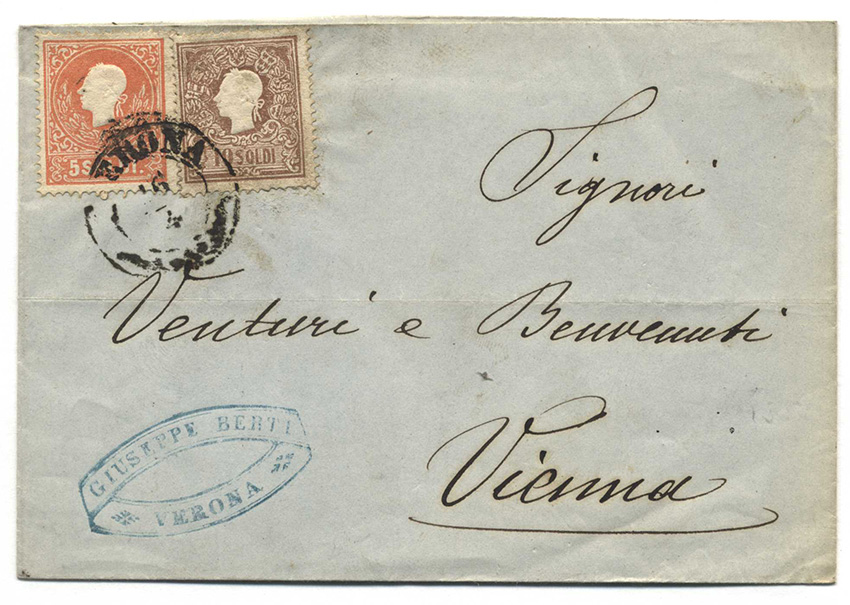 5 SOLDI
10 SOLDI
VERONA
Signori
Venturi e Benvenuti
Vienna
GIUSEPPE BERTI
VERONA